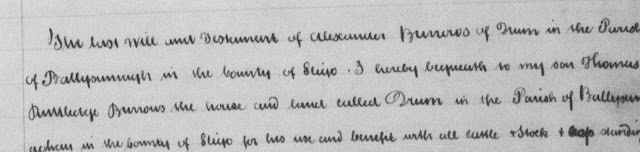 The last Will and Testament of Alexander Burrows of Drum in the Parish
of Ballysumaghan in the County of Sligo. I hereby bequeath to my son Thomas
Ruttledge Burrows the house and land called Drum in the Parish of Ballysum
aghan in the County of Sligo for his use and benefit with all cattle + stock + crop standin